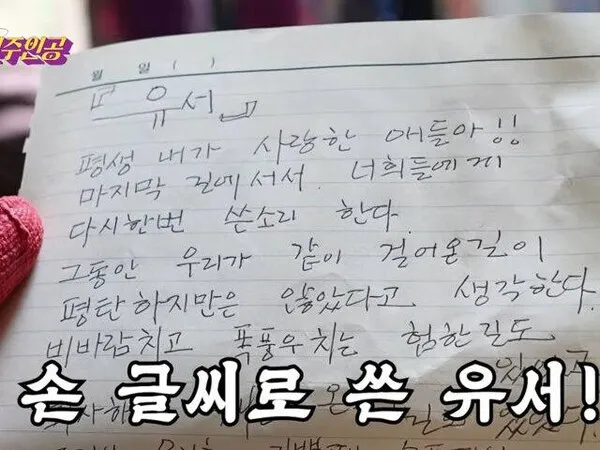 주인공
월 일 ( )
『유서』
평생 내가 사랑한 애들아!!
마지막 길에 서서 너희들에게
다시한번 쓴소리 한다.
그동안 우리가 같이 걸어온길이
평탄하지만은 않았다고 생각한다.
비바람치고 폭풍우치는 험한길도
손 글씨로 쓴 유서!